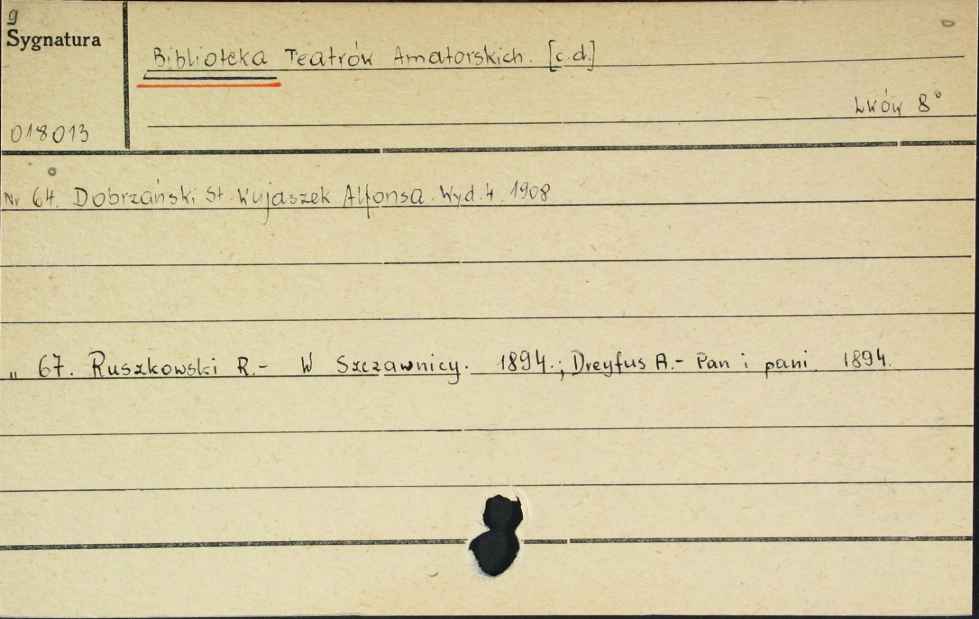 g
Sygnatura
Biblioteka Teatrów Amatorskich. [c.d.]
Lwów 8°
018013
Nr 64. Dobrzański St. Wujaszek Alfonsa. Wyd. 4. 1908
„ 67. Ruszkowski R.- W Szczawnicy. 1894.; Dreyfus A.- Pan i pani. 1894.